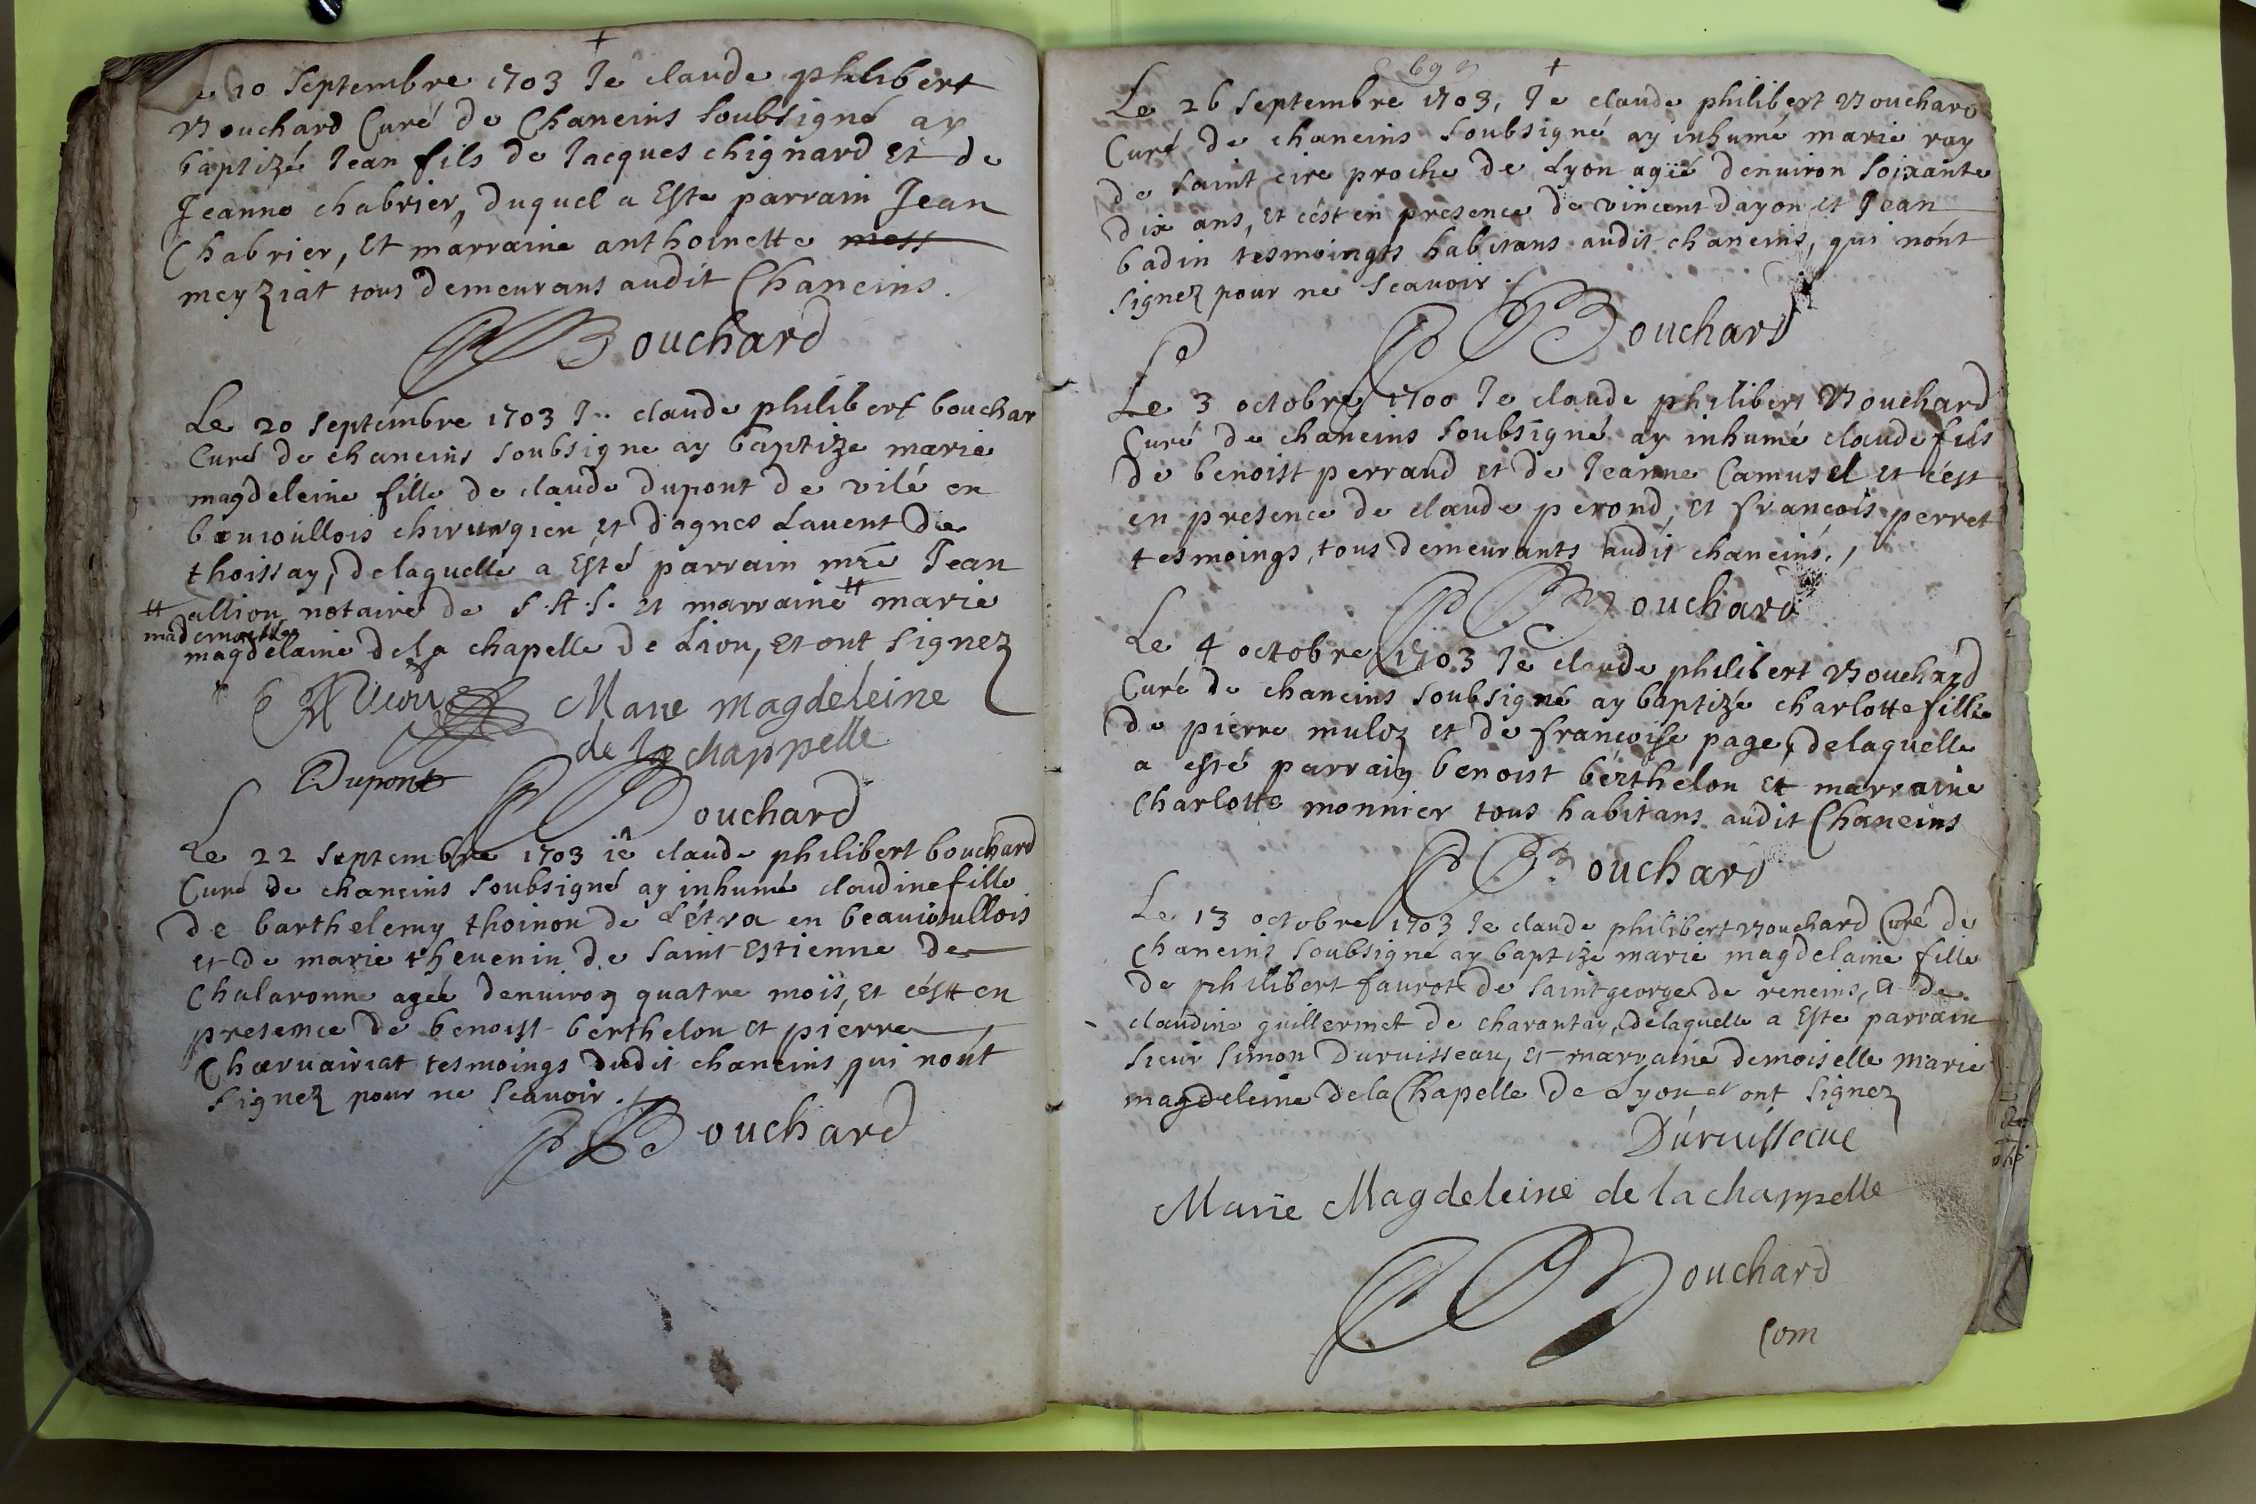 +
Le 10 septembre 1703 Je claude philibert
Bouchard Curé de Chaneins soubsigné ay
baptizé Jean fils de Jacques chignard et de
Jeanne chabrier, duquel a Esté parrain Jean
Chabrier, Et marraine anthoinette mess
meyziat tous demeurans audit Chaneins.
Bouchard
Le 20 septembre 1703 Je claude philibert bouchar
Curé de chaneins soubsigne ay baptize marie
magdeleine fille de claude dupont de vilé en
beauioullois chirurgien et d'agnes Lauent de
thoissay, delaquelle a Esté parrain mre Jean
# allion notaire de S.A.S. et marraine # marie
mademoiselle
magdelaine dela chapelle de Lion, et ont signez
Marie Magdeleine
de la chappelle
Dupont
Bouchard
Le 22 septembre 1703 ie claude philibert bouchard
Curé de chaneins soubsigné ay inhumé claudine fille
de barthelemy thoinon de Létra en beauioullois
et de marie thevenin de saint Estienne de
Chalaronne agée denuiron quatre mois, et cést en
presence de benoist berthelon et pierre
Charuairiat tesmoings dudit chaneins qui nont
signez pour ne scauoir.
Bouchard
+
Le 26 septembre 1703, Je claude philibert Bouchard
Curé de chaneins soubsigné ay inhumé marie ray
de saint cire proche de Lyon agié denuiron soixante
dix ans, et cést en presence de vincent dayon et Jean
badin tesmoingts habitans audit chaneins, qui nont
signez pour ne scauoir.
Bouchard
Le 3 octobre 1700 Je claude philibert Bouchard
Curé de chaneins soubsigné ay inhumé claude fils
de benoist perraud et de Jeanne Camusel et cést
en presence de claude perond, et francois perret
tesmoings, tous demeurants audit chaneins.
Bouchard
Le 4 octobre 1703 Je claude philibert Bouchard
Curé de chaneins soubsigné ay baptizé charlotte fille
de pierre muloz et de francoise page, delaquelle
a esté parrain benoist berthelon et marraine
Charlotte monnier tous habitans audit Chaneins
Bouchard
Le 13 octobre 1703 Je claude philibert Bouchard Curé de
Chaneins soubsigné ay baptize marie magdelaine fille
de philibert faurot de saint george de reneins, et de
claudine guillermet de charantay, delaquelle a Este parrain
sieur simon Duruisseau, et marraine demoiselle marie
magdeleine dela Chapelle de Lyon et ont signez
Duruisseau
Marie Magdeleine de la chappelle
Bouchard
Com